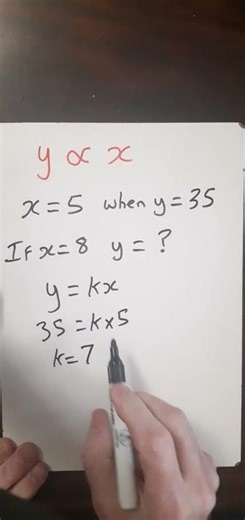 y ∝ x
x = 5 when y = 35
If x = 8 y = ?
y = kx
35 = k × 5
k = 7